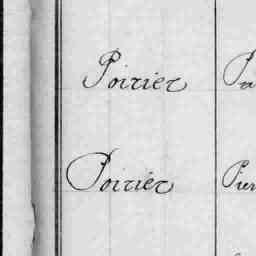 Poirier
Poirier Pier